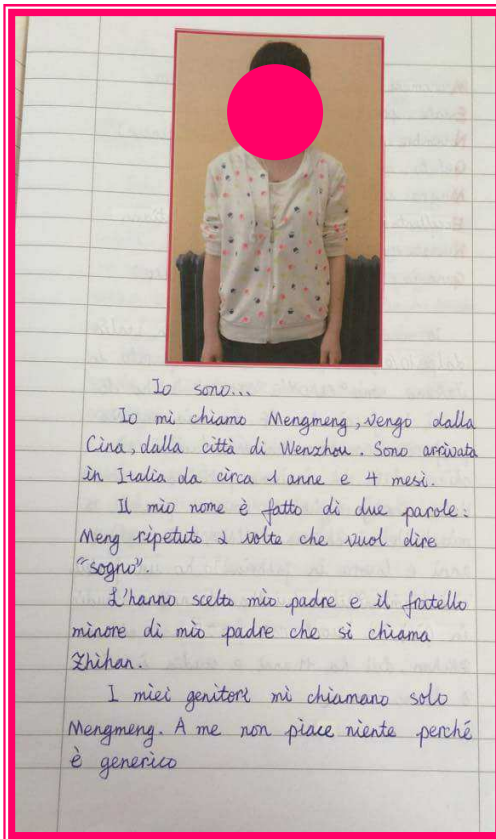 Io sono...
Io mi chiamo Mengmeng, vengo dalla
Cina, dalla città di Wenzhou. Sono arrivata
in Italia da circa 1 anne e 4 mesi.
Il mio nome è fatto di due parole:
Meng ripetuto 2 volte che vuol dire
"sogno".
L'hanno scelto mio padre e il fratello
minore di mio padre che si chiama
Zhihan.
I miei genitori mi chiamano solo
Mengmeng. A me non piace niente perché
è generico